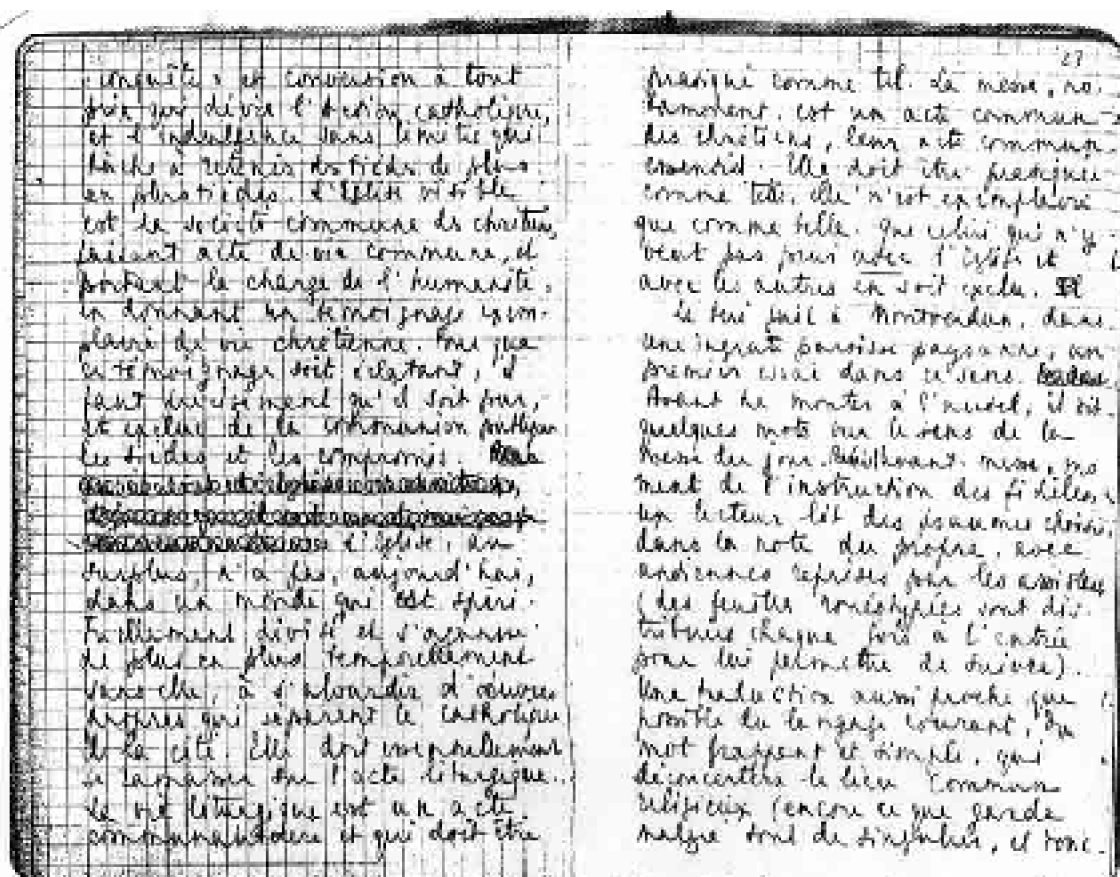 conquête » et conversion à tout
prix qui dévie l'Action catholique,
et l'indulgence sans limite qui
tâche à retenir des tièdes de plus
en plus tièdes. L'Eglise visible
est la société commune des chrétiens,
faisant acte de vie commune, et
portant la charge de l'humanité,
en donnant un témoignage exem-
plaire de vie chrétienne. Pour que
ce témoignage soit éclatant, il
faut qu'il soit pur,
et exclue de la communion publique
les tièdes et les compromis.
l'Eglise, au
surplus, n'a pas, aujourd'hui,
dans un monde qui est spiri-
tuellement divisé et s'organise
de plus en plus temporellement
sans elle, à s'alourdir d'œuvres
propres qui séparent le catholique
de la cité. Elle doit
se ramasser sur l'acte liturgique.
La vie liturgique est un acte
communautaire et qui doit être
27
pratiqué comme tel. La messe, no-
tamment, est un acte commun
des chrétiens, leur acte commun
essentiel. Elle doit être pratiquée
comme telle, elle n'est
que comme telle. Que celui qui n'y
vient pas prier avec l'Eglise et
avec les autres en soit exclu.
Le père fait à Montverdun, dans
une ingrate paroisse paysanne, un
premier essai dans ce sens.
Avant de monter à l'autel, il dit
quelques mots sur le sens de la
messe du jour. messe, mo-
ment de l'instruction des fidèles,
un lecteur lit des psaumes choisis,
dans la note du propre, avec
antiennes reprises par les assistants
(des feuilles ronéotypées sont dis-
tribuées chaque fois à l'entrée
pour leur permettre de suivre).
Une traduction aussi proche que
possible du langage courant, du
mot frappant et simple, qui
déconcerte le lieu commun
religieux (encore ce que garde
malgré tout de singulier, et ronc-